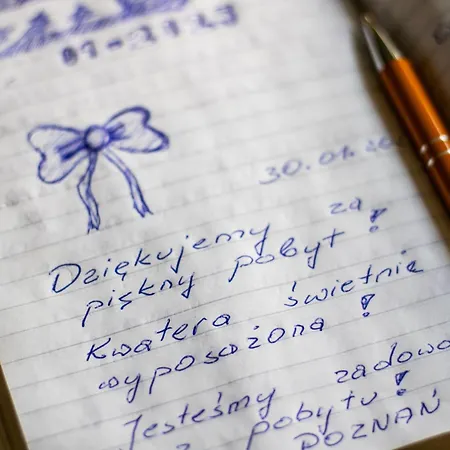 30.01.
Dziękujemy za
piękny pobyt!
Kwatera świetnie
wyposażona!
Jesteśmy
z pobytu!
POZNAŃ